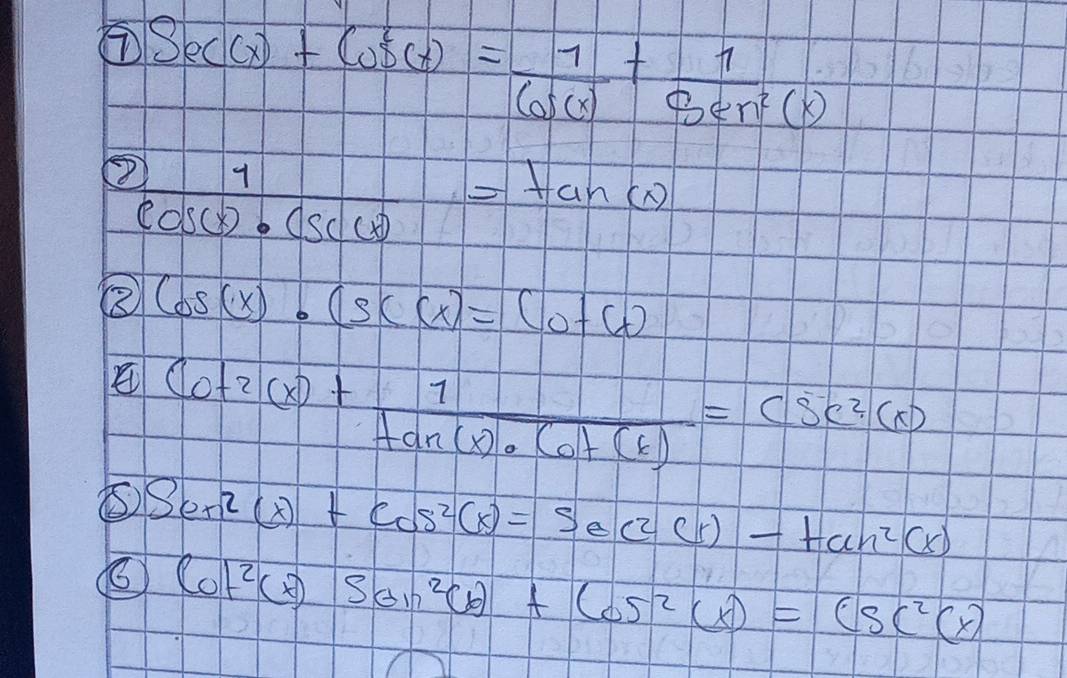 ① Sec(x) + Cos²(x) = 1/Cos(x) + 1/Sen²(x)
② 1/(Cos(x) • Csc(x)) = tan(x)
③ Cos(x) • Csc(x) = Cot(x)
④ Cot²(x) + 1/(tan(x) • Cot(x)) = Csc²(x)
⑤ Sen²(x) + Cos²(x) = Sec²(x) - tan²(x)
⑥ Cot²(x) Sen²(x) + Cos²(x) = Csc²(x)